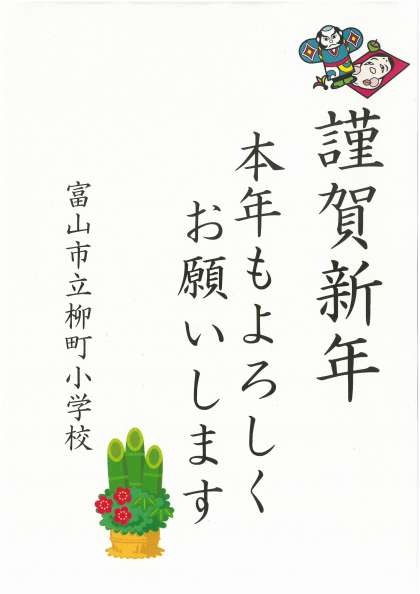 謹賀新年
本年もよろしく
お願いします
富山市立柳町小学校